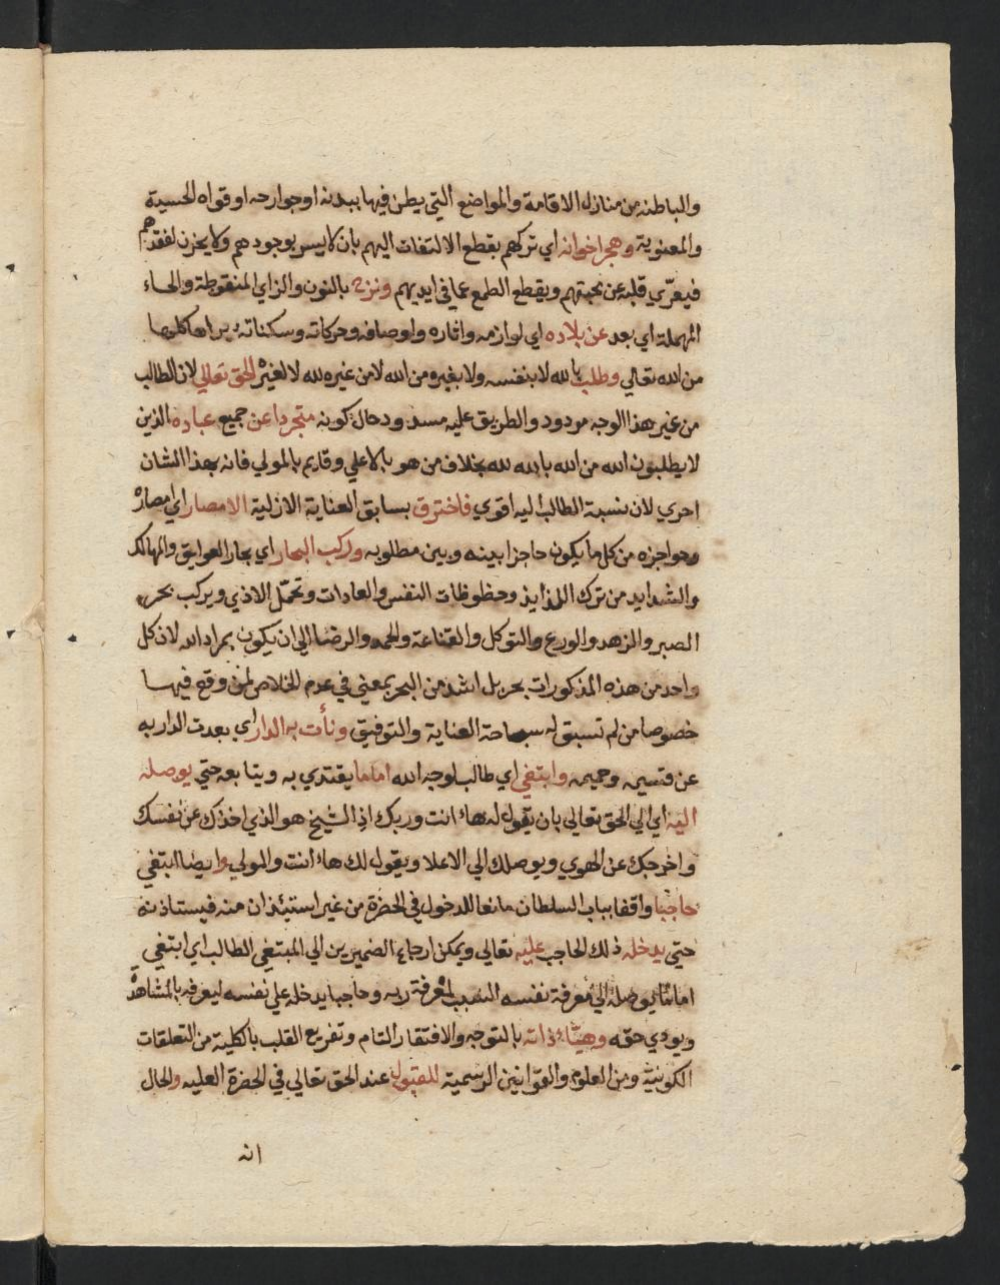 والباطنه من منازل الاقامة والمواضع التي يطن فيها ببدنه او جوارحه او قواه الحسية
والمعنوية وهجر اخوانه اي تركهم بقطع الالتفات اليهم بان لا يسر بوجودهم ولا يحزن لفقدهم
فيعرّي قلبه عن محبتهم ويقطع الطمع عما في ايديهم ونزح بالنون والزاي المنقوطة والحاء
المهملة اي بعد عن بلاده اي لوازمه واثاره واوصافه وحركاته وسكناته يراها كلها
من الله تعالي وطلب بالله لا بنفسه ولا بغيره من الله لا من غيره لله لا لغيره الحق تعالي لان الطالب
من غير هذا الوجه مردود والطريق عليه مسدود حال كونه متجردا عن جميع عباده الذين
لا يطلبون الله من الله بالله لله بخلاف من هو بالاعلي وقايم بالمولي فانه بهذا الشان
احري لان نسبة الطالب اليه اقوي فاخترق بسابق العناية الازلية الامصار اي امصاره
وحواجزه من كل ما يكون حاجزا بينه وبين مطلوبه وركب البحار اي بحار العوايق والمهالك
والشدايد من ترك اللذايذ وحظوظات النفس والعادات وتحمّل الاذي ويركب بحر
الصبر والزهد والورع والتوكل والقناعة والحمد والرضا الي ان يكون بمراد الله لان كل
واحد من هذه المذكورات بحر بل اشد من البحر بمعني في عدم الخلاص لمن وقع فيها
خصوصا من لم تسبق له سباحة العناية والتوفيق ونأت به الدار اي بعدت الدار به
عن قسيمه وحميمه وابتغي اي طالب لوجه الله اماما يقتدي به ويتابعه حتي يوصله
اليه اي الي الحق تعالي بان يقول له هاء انت وربك اذ الشيخ هو الذي اخذك عن نفسك
واخرجك عن الهوي ويوصلك الي الاعلا ويقول لك هاء انت والمولي وايضا ابتغي
حاجبا واقفا بباب السلطان مانعا للدخول في الحضرة من غير استيئذان منه فيستاذنه
حتي يدخله ذلك الحاجب عليه تعالي ويمكن ارجاع الضميرين الي المبتغي الطالب اي ابتغي
اماما يوصله الي معرفة نفسه السبب لمعرفة ربه وحاجبا يدخله علي نفسه ليعرفه بالمشاهدة
ويودي حقه وهيّاء ذاته بالتوجه والافتقار التام وتفريع القلب بالكلية من التعلقات
الكونية ومن العلوم والقوانين الرسمية للقبول عند الحق تعالي في الحضرة العليه والحال
انه